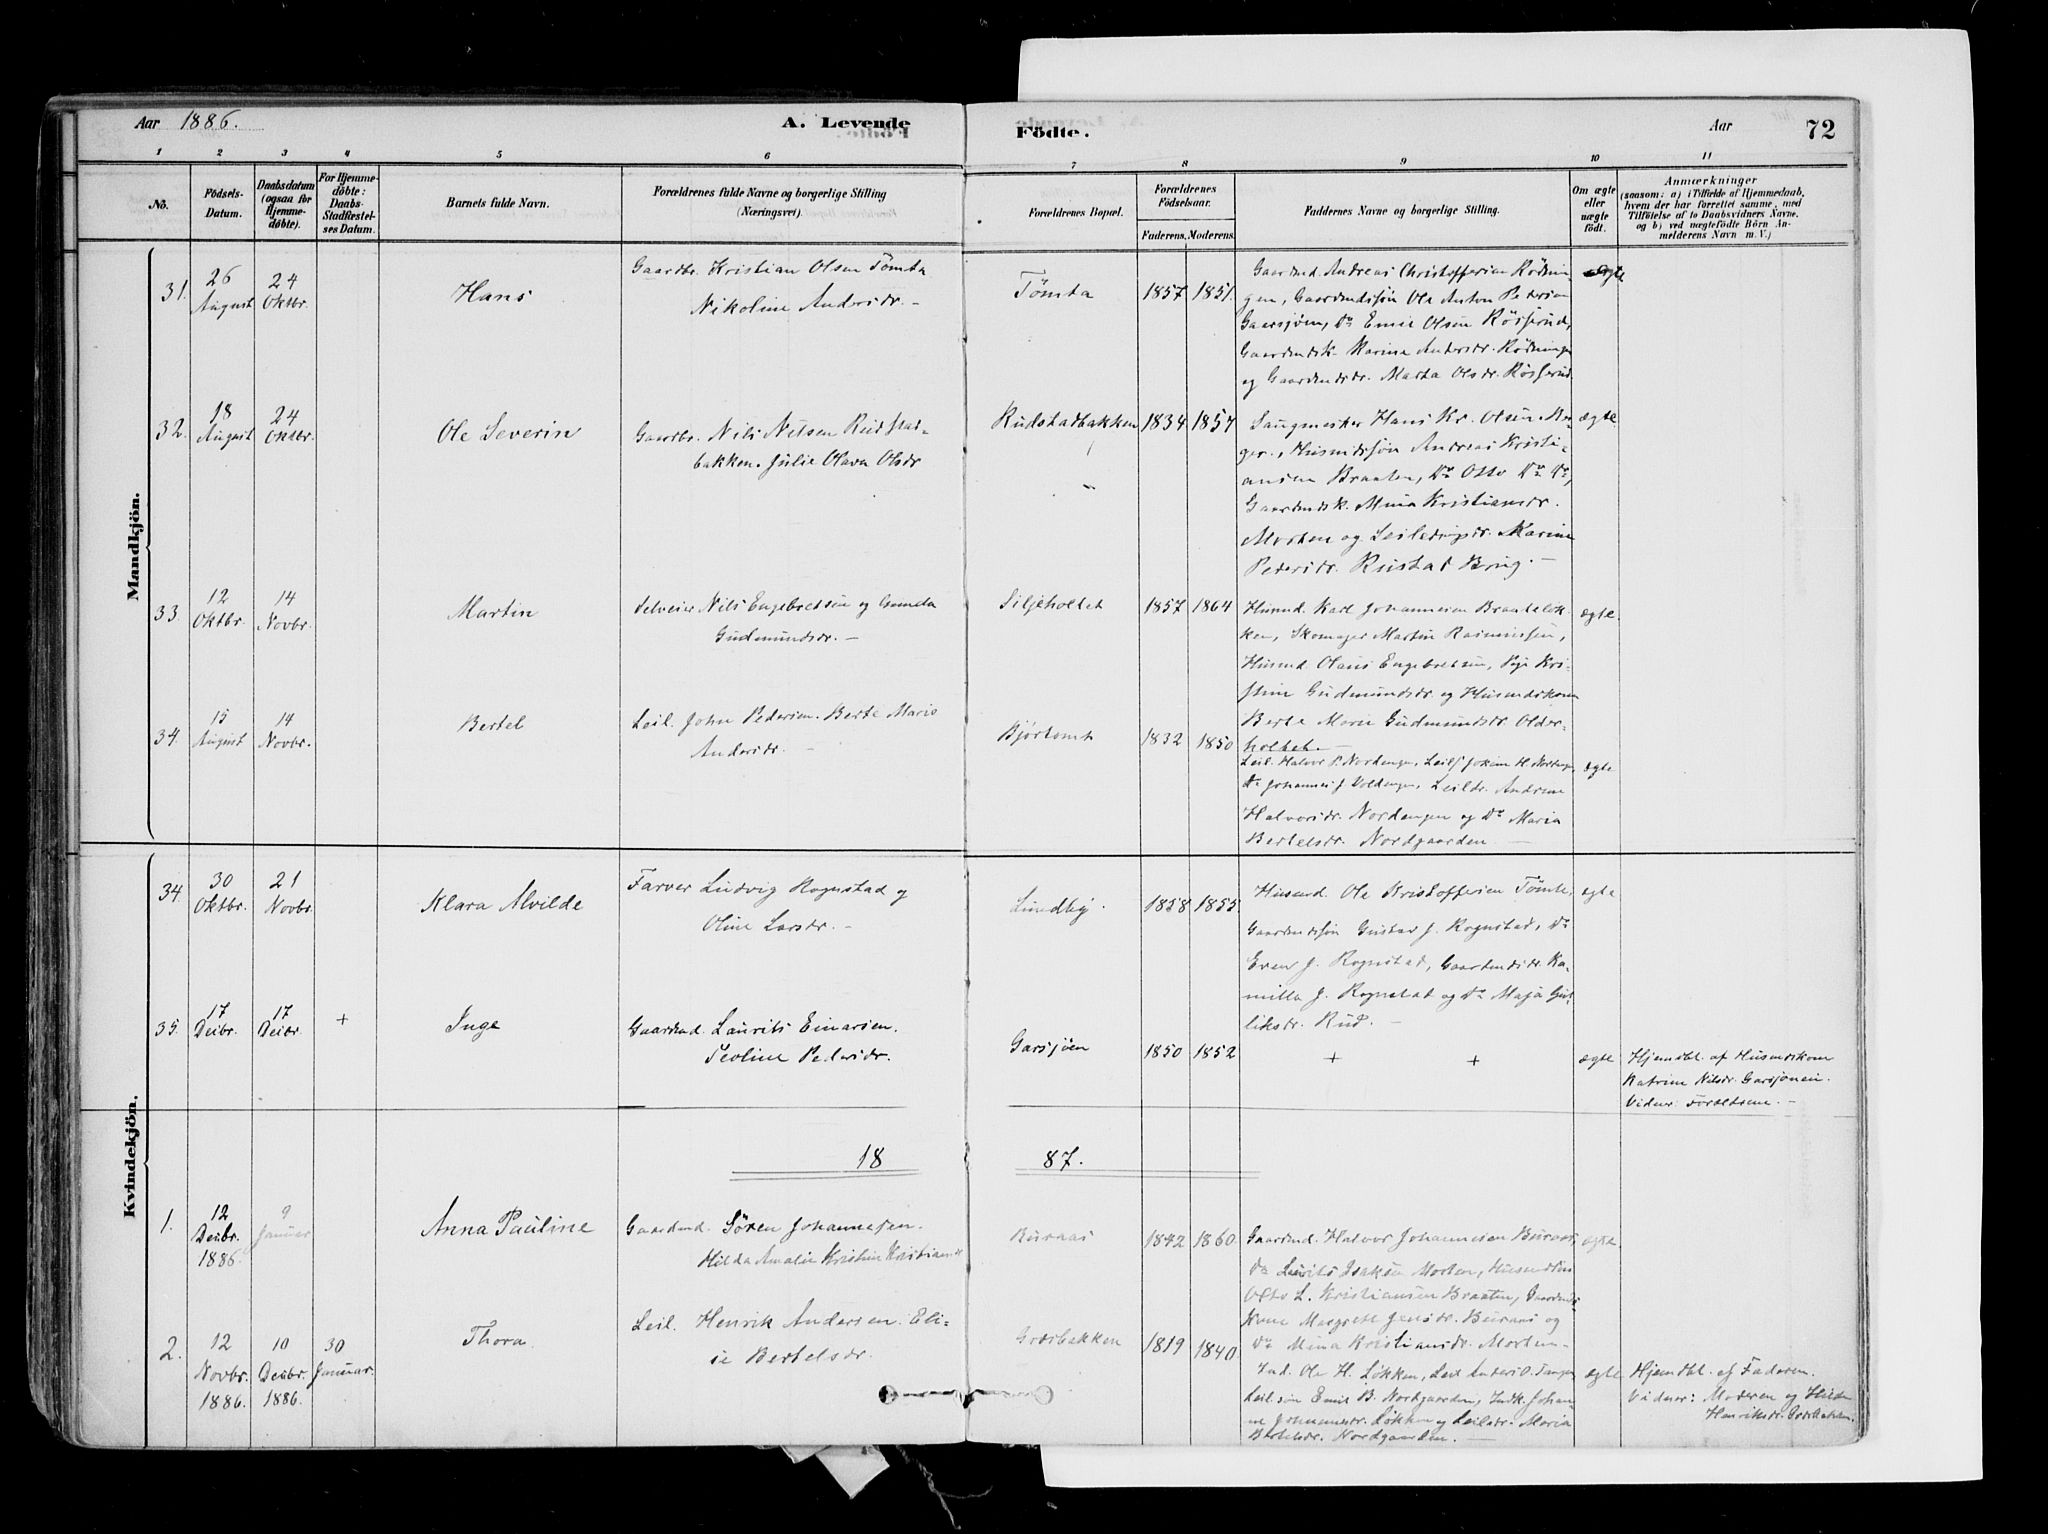 Aar 1886.
A. Levende
Födte.
Aar
72
1 2 3 4 5 6 7 8 9 10 11
No.
Födsels-
Datum.
Daabsdatum
(ogsaa for
Hjemme-
döbte).
For Hjemme-
döbte:
Daabs-
Stadfæstel-
ses Datum.
Barnets fulde Navn.
Forældrenes fulde Navne og borgerlige Stilling
(Næringsvei).
Forældrenes Bopæl.
Forældrenes
Födselsaar.
Faderens. Moderens.
Faddernes Navne og borgerlige Stilling.
Om ægte
eller
uægte
födt.
Anmærkninger
(saasom: a) i Tilfælde af Hjemmedaab,
hvem der har forrettet samme, med
Tilföielse af to Daabsvidners Navne.
og b) ved uægtefödte Börn An-
melderens Navn m. V.)
Mandkjön.
31.
26
August
24
Oktbr.
Hans
Gaardbr. Kristian Olsen Tömta
Nikoline Andersdr. –
Tömta
1857
1851.
Gaardmd. Andreas Christoffersen Rödnin-
gen, Gaardmdssön Ole Anton Pedersen
Gaarsjøen, Do Emil Olsen Røsserud,
Gaardmdsk. Karine Andersdr. Rødningen
og Gaardmdsdr. Marta Olsdr. Røsserud.
ægte
32.
18
August
24
Oktbr.
Ole Severin
Gaardbr. Nils Nilsen Rudstad-
bakken. Julie Olava Olsdr
Rudstadbakken
1834
1857
Saugmester Hans Kr. Olsen Ber-
ger., Husmdssøn Andreas Kristi-
ansen Braaten, Do Otto Do Do,
Gaardmdsk. Mina Kristiansdr.
Morten og Leilendingsdr. Karine
Pedersdr. Rustad Brug. –
ægte.
33.
12
Oktbr.
14
Novbr.
Martin
Selveier Nils Engebretsen og Gunda
Gudmundsdr. –
Siljeholtet
1857
1864
Husmd. Karl Johannesen Braateløk-
ken, Skomager Martin Rasmussen,
Husmd. Olaus Engebretsen, Pige Kri-
stine Gudmundsdr og Husmdskone
Berte Marie Gudmundsdr Older-
holtet. –
ægte.
34.
15
August
14
Novbr.
Bertel
Leil. John Pedersen. Berte Maris
Andersdr. –
Bjørtomt
1832
1850
Leil. Halvor P. Nordengen, Leils. Jokim H. Nordengen,
Do Johannes J. Voldengen, Leildr. Andrine
Halvorsdr. Nordengen og Do Maria
Bertelsdr. Nordgaarden –
ægte
Kvindekjön.
34.
30
Oktbr.
21
Novbr.
Klara Alvilde
Farver Ludvig Rognstad og
Oline Larsdr. –
Lundby.
1858
1855.
Husmd. Ole Kristoffersen Tömte,
Gaardmdssøn Gustav J. Rognstad, Do
Even J. Rognstad, Gaardmdsdr. Ka-
milla J. Rognstad og Do Maja Gul-
liksdr. Rud. –
ægte
35.
17
Decbr.
17
Decbr.
+
Inge
Gaardmd. Laurits Einarsen.
Peoline Pedersdr.
Garsjøen
1850
1852
+
+
ægte
Hjemdbt. af Husmdskone
Katrine Nilsdr. Garsjøneie.
Vidner: Forældrene. –
18
87.
1.
12
Decbr.
1886.
9
Januar
Anna Pauline
Gaardmd. Søren Johannesen.
Hilda Amalie Kristine Kristiansdr
Buraas
1842
1860.
Gaardmd. Halvor Johannesen Buraas,
Do Laurits Isaksen Morten, Husmdssøn
Otto L. Kristiansen Braaten, Gaardmds-
kone Margrete Jensdr. Buraas og
Do Mina Kristiansdr. Morten –
ægte.
2.
12
Novbr.
1886.
10
Decbr.
1886.
30
Januar.
Thora
Leil. Henrik Andersen. Eli-
se Bertelsdr.
Græsbakken
1819
1840
Ind. Ole H. Løkken, Leil Anders O. Tangen
Leil.søn Emil B. Nordgaarden, Indk. Johan-
ne Johannesdr. Løkken og Leilsdr. Maria
Bertelsdr. Nordgaarden. –
ægte
Hjemdbt. af Faderen.
Vidner: Moderen og Hilda
Henriksdr. Græsbakken.